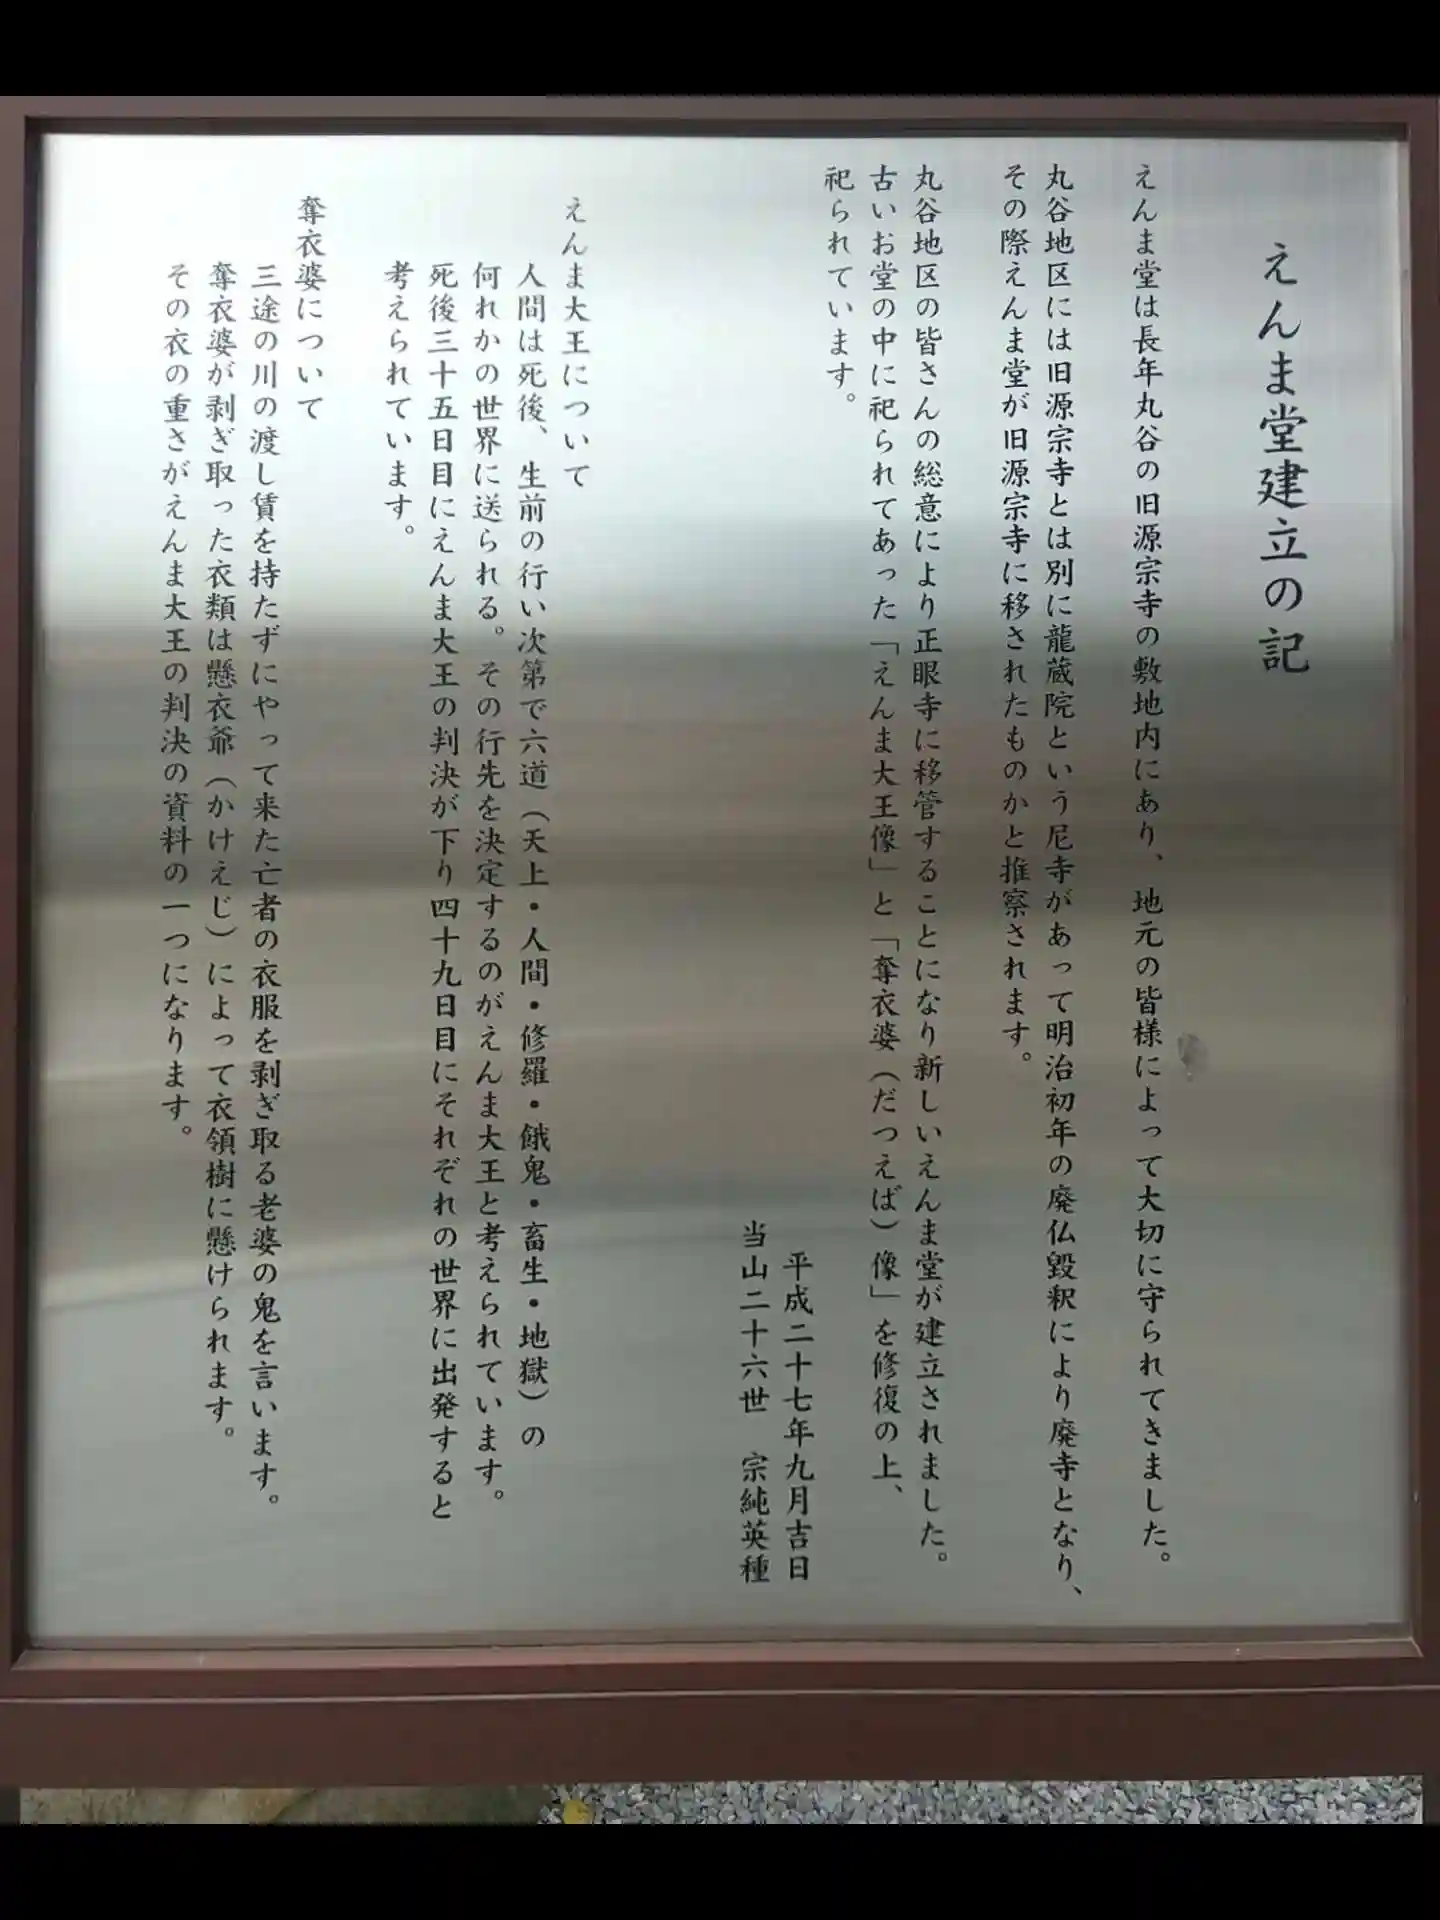 えんま堂建立の記
えんま堂は長年丸谷の旧源宗寺の敷地内にあり、地元の皆様によって大切に守られてきました。
丸谷地区には旧源宗寺とは別に龍蔵院という尼寺があって明治初年の廃仏毀釈により廃寺となり、
その際えんま堂が旧源宗寺に移されたものかと推察されます。
丸谷地区の皆さんの総意により正眼寺に移管することになり新しいえんま堂が建立されました。
古いお堂の中に祀られてあった「えんま大王像」と「奪衣婆（だつえば）像」を修復の上、
祀られています。
平成二十七年九月吉日
当山二十六世　宗純英種
えんま大王について
人間は死後、生前の行い次第で六道（天上・人間・修羅・餓鬼・畜生・地獄）の
何れかの世界に送られる。その行先を決定するのがえんま大王と考えられています。
死後三十五日目にえんま大王の判決が下り四十九日目にそれぞれの世界に出発すると
考えられています。
奪衣婆について
三途の川の渡し賃を持たずにやって来た亡者の衣服を剥ぎ取る老婆の鬼を言います。
奪衣婆が剥ぎ取った衣類は懸衣爺（かけえじ）によって衣領樹に懸けられます。
その衣の重さがえんま大王の判決の資料の一つになります。